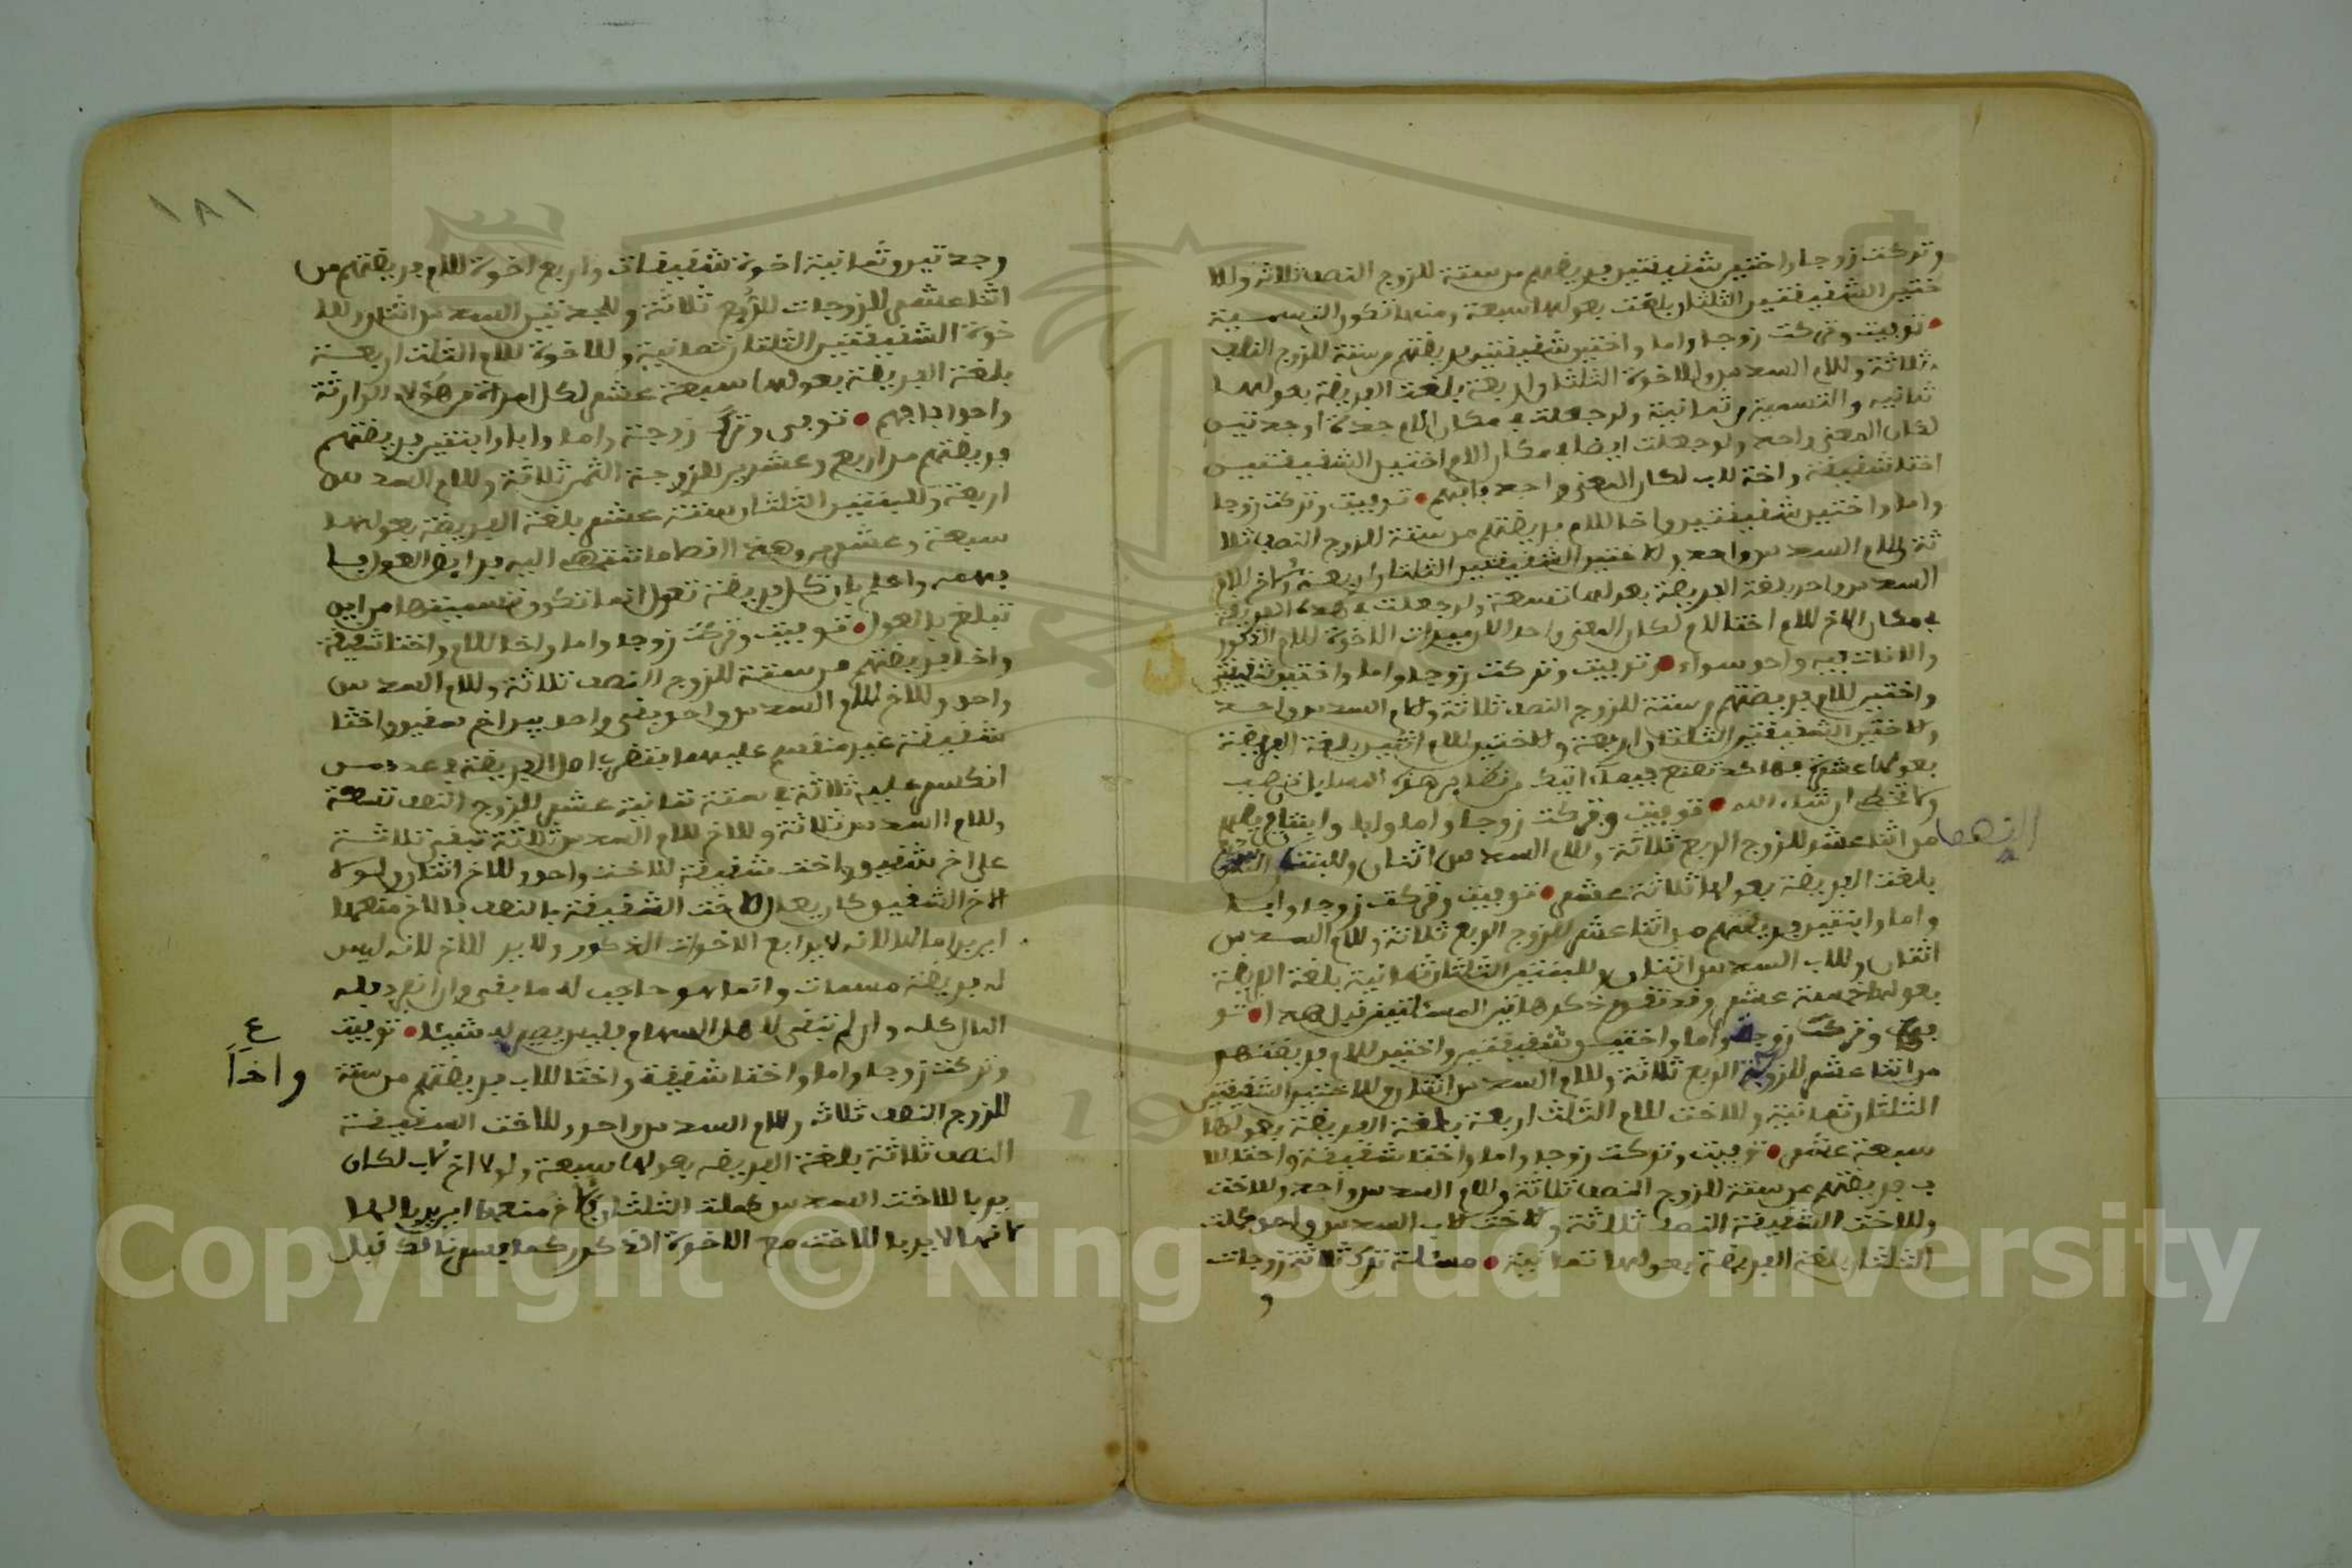 وتركت زوجا واختين شقيقتين فريضتهم من ستة للزوج النصف ثلاثة وللا
ختين الشقيقتين الثلثان بلغت بعولها سبعة ومنها تكون التسمية
توفيت وتركت زوجا واما واختين شقيقتين فريضتهم من ستة للزوج النصف
ثلاثة وللام السدس وللاخوة الثلثان اربعة بلغت الفريضة بعولها
ثمانيه والتسمية من ثمانية ولو جعلت في مكان الام جدة او جدتين
لكان المعنى واحد ولو جعلت ايضا في مكان الاختين الشقيقتين
اختا شقيقة واخة للاب لكان المعنى واحد فافهم توفيت وتركت زوجا
واما واختين شقيقتين واخا للام فريضتهم من ستة للزوج النصف ثلا
ثة وللام السدس واحد وللاختين الشقيقتين الثلثان اربعة وللاخ للام
السدس واحد بلغة الفريضة بعولها تسعة ولو جعلت في هذه الفريضة
في مكان الاخ للام اختا للام لكان المعنى واحد لان ميراث الاخوة للام الذكور
والاناث فيه واحد سواء توفيت وتركت زوجا واما واختين شقيقتين
واختين للام فريضتهم من ستة للزوج النصف ثلاثة وللام السدس واحد
وللاختين الشقيقتين الثلثان اربعة وللاختين للام اثنين بلغة الفريضة
بعولها عشرة فهاكذ تصنع فيما اتيك من نظاير هذه المسايل تصيب
ولا تخطى ان شاء الله توفيت وتركت زوجا واما وابا وابنتا فريضتهم
من اثنا عشر للزوج الربع ثلاثة وللام السدس اثنان وللبنت النصف
النصف
بلغت الفريضة بعولها ثلاثة عشر توفيت وتركت زوجا وابا
واما وابنتين فريضتهم من اثنا عشر للزوج الربع ثلاثة وللام السدس
اثنان وللاب السدس اثنان وللبنتين الثلثان ثمانية بلغة الفريضة
بعولها خمسة عشر وقد تقدم ذكر هاتين المسئلتين قبل هذا تو
في وترك زوجة واما واختين شقيقتين واختين للام فريضتهم
من اثنا عشر للزوجة الربع ثلاثة وللام السدس اثنان وللاختين الشقيقتين
الثلثان ثمانية وللاخت للام الثلث اربعة بلغة الفريضة بعولها
سبعة عشر توفيت وتركت زوجا واما واختا شقيقة واختا للا
ب فريضتهم من ستة للزوج النصف ثلاثة وللام السدس واحد وللاخت
وللاخت الشقيقة النصف ثلاثة وللاخت للاب السدس واحد تكملت
الثلثان بلغة الفريضة بعولها ثمانية مسئلة ترك ثلاثة زوجات
و
١٨١
وجدتين وثمانية اخوة شقيقات واربع اخوة للام فريضتهم من
اثنا عشر للزوجات الربع ثلاثة وللجدتين السدس اثنان وللا
خوة الشقيقتين الثلثان ثمانية وللاخوة للام الثلث اربعة
بلغة الفريضة بعولها سبعة عشر لكل امراة من هؤلاء الوارثة
واحدا فافهم توفى وترك زوجة واما وابا وابنتين فريضتهم
فريضتهم من اربع وعشرين للزوجة الثمن ثلاثة وللام السدس
اربعة وللبنتين الثلثان ستة عشر بلغة الفريضة بعولها
سبعة وعشرين وهذه اقصا ما تنتهى اليه فرايض العول فا
فهمه واعلم بان كل فريضة تعول انما تكون تسميتها من اين
تبلغ بالعول توفيت وتركت زوجا واما واخا للام واختا شقيقة
واخا فريضتهم من ستة للزوج النصف ثلاثة وللام السدس
واحد وللاخ للام السدس واحد بقى واحد بين اخ شقيق واختا
شقيقة غير منقسم عليهما فتضرب اصل الفريضة في عدد من
انكسر عليه ثلاثة في ستة ثمانية عشر للزوج النصف تسعة
وللام السدس ثلاثة وللاخ للام السدس ثلاثة تبقى ثلاثة
على اخ شقيق واخت شقيقة للاخت واحد وللاخ اثنان ولولا
الاخ الشقيق كان يعال للاخت الشقيقة بالنصف فالاخ منعها
ان يربا لها لانه لا يربا مع الاخوات الذكور ولا يربى للاخ لانه ليس
له فريضة مسمات وانما هو حاجب له ما بقى وان انفرد فله
المال كله وان لم تبقى لاهل السهام فليس يصير له شيئا توفيت
وتركت زوجا واما واختا شقيقة واختا للاب فريضتهم من ستة
ع
واخاً
للزوج النصف ثلاثه وللام السدس واحد وللاخت الشقيقة
النصف ثلاثة بلغة الفريضه بعولها سبعة ولولا اخ لاب لكان
يربا للاخت السدس تكملت الثلثان فالاخ منعها ان يربا لها
لانها لا يربا للاخت مع الاخوة الذكور كما فسرنا لك قبل